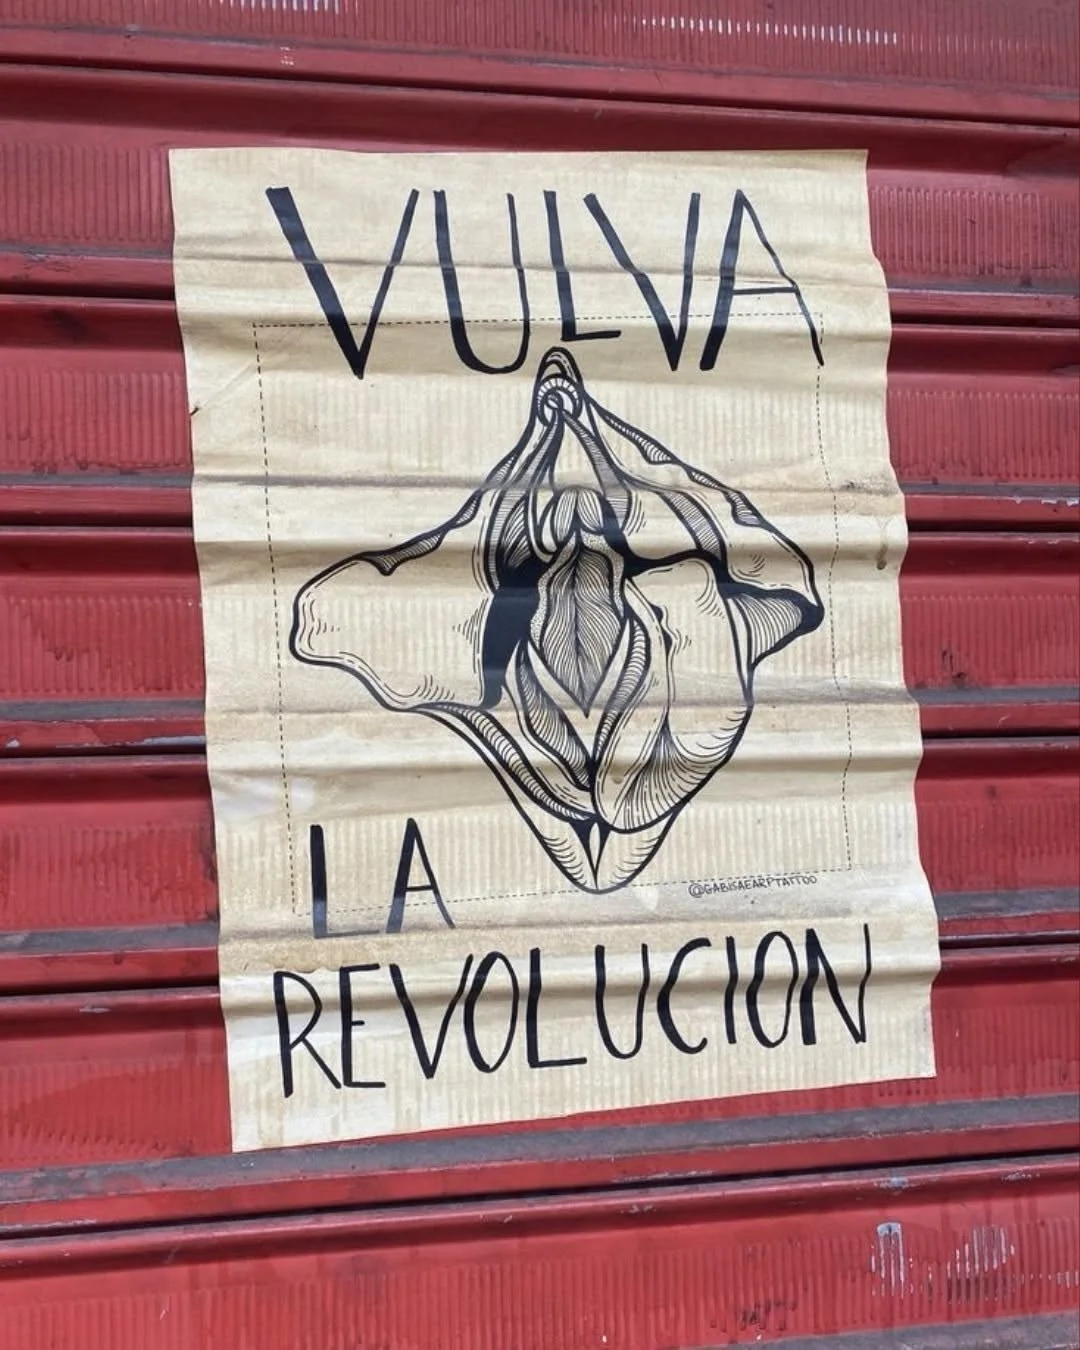 VULVA
LA
@GABISAEARPTATTOO
REVOLUCION